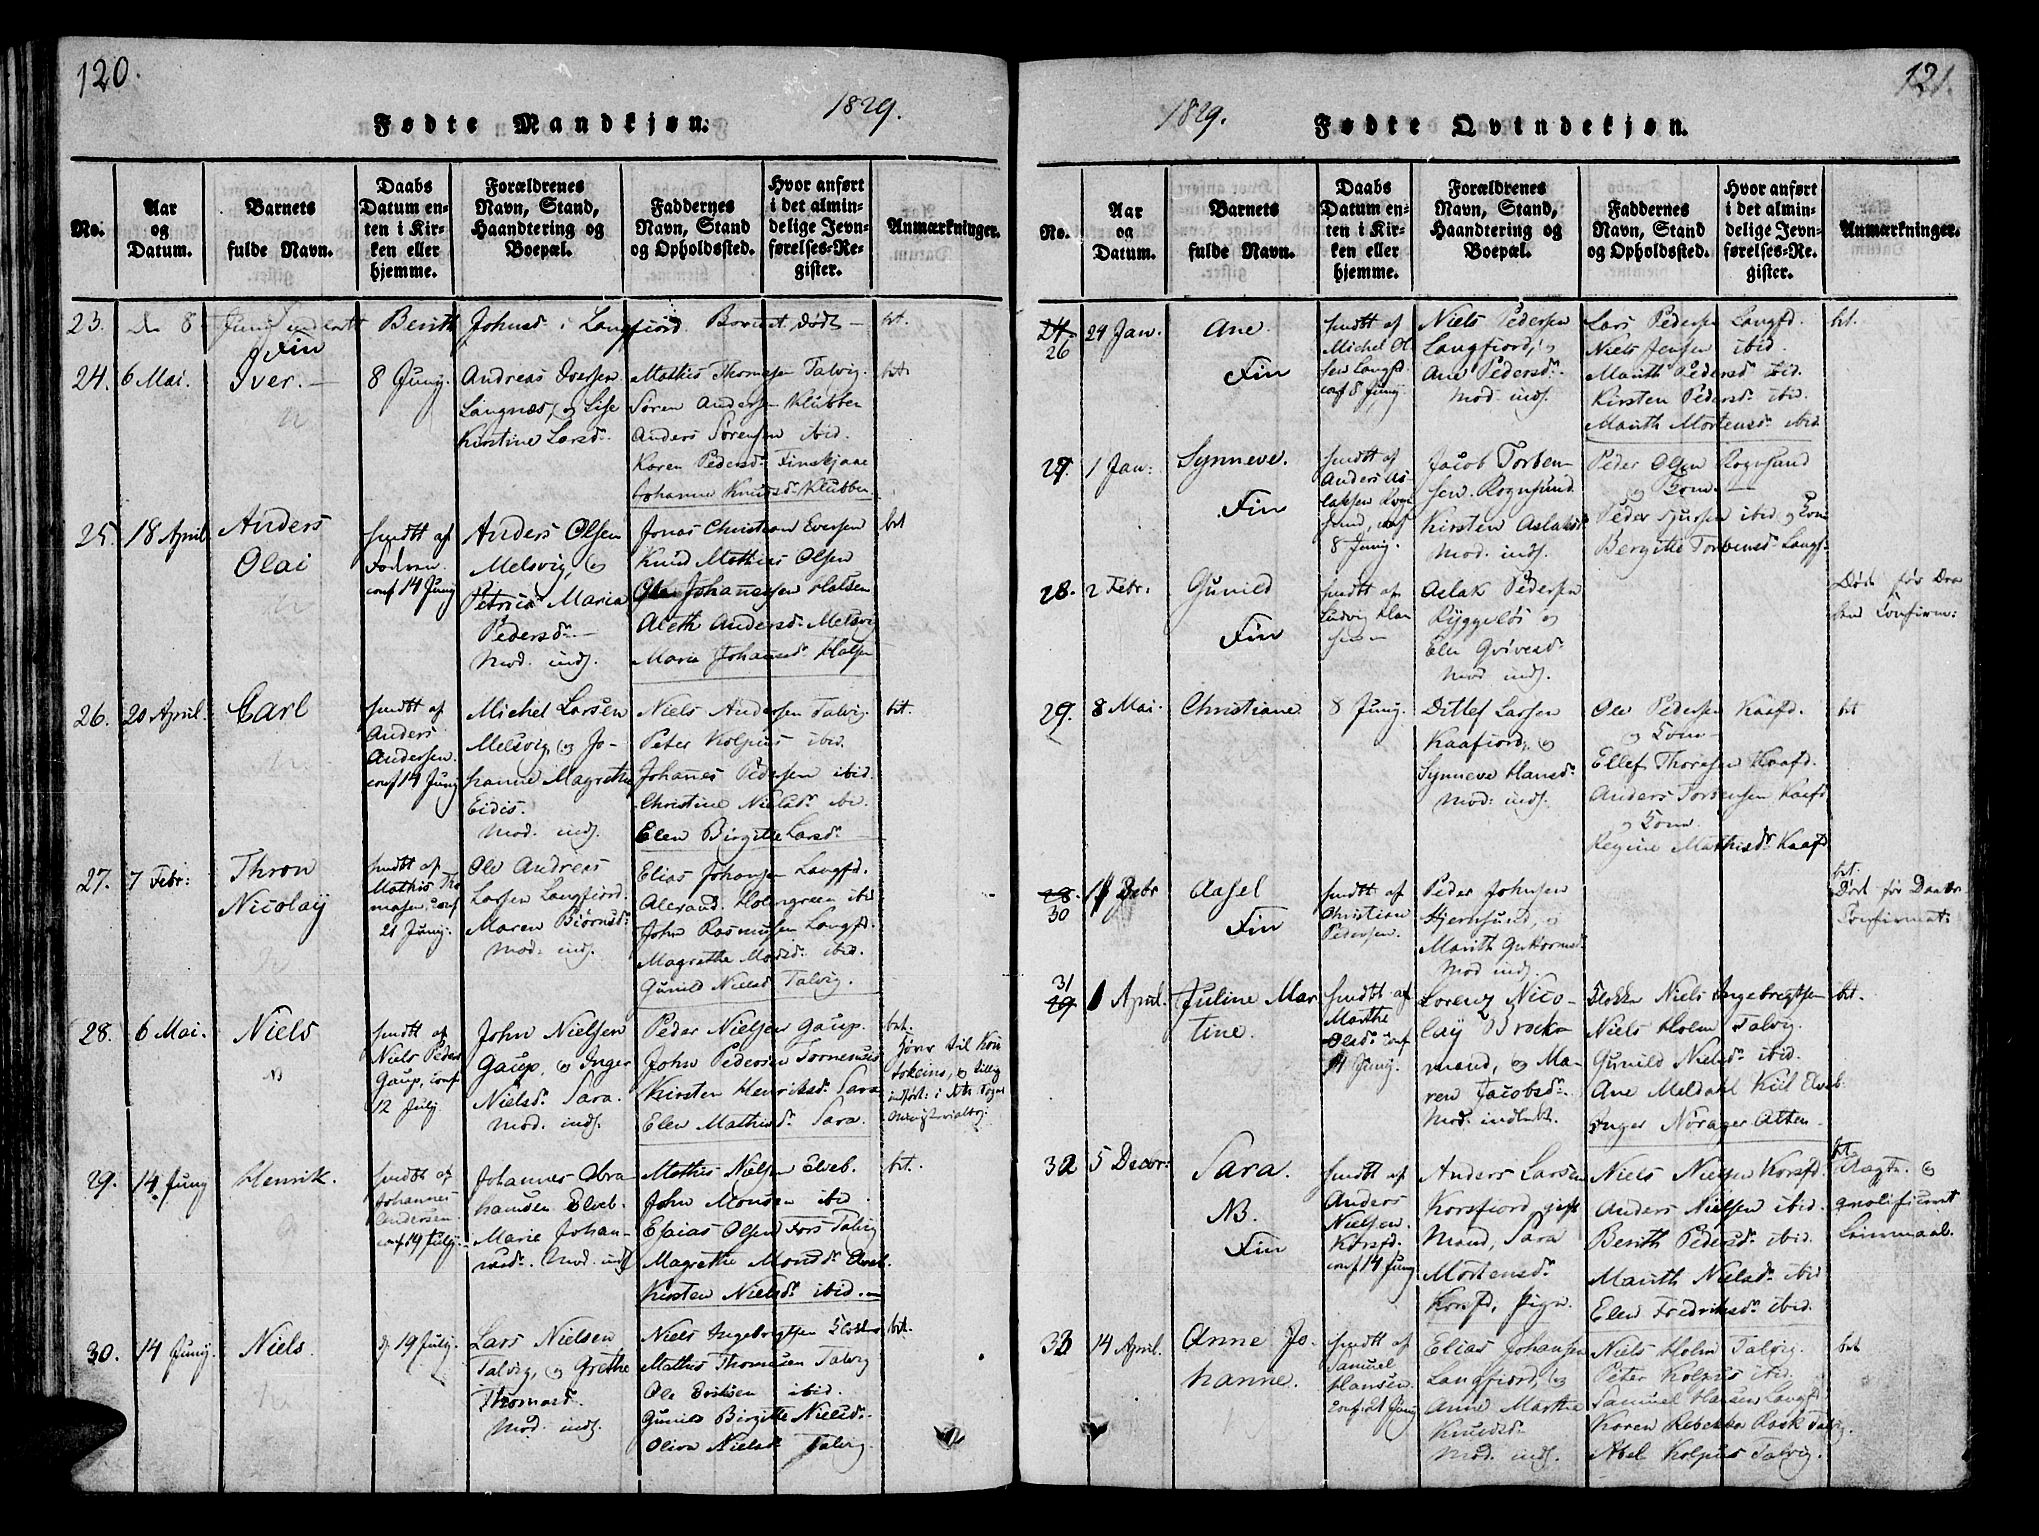 120.
Fødte Mandkjøn.
1829.
No.
Aar og Datum.
Barnets fulde Navn.
Daabs Datum enten i Kirken eller hjemme.
Forældrenes Navn, Stand, Haandtering og Boepæl.
Faddernes Navn, Stand og Opholdssted.
Hvor anført i det almindelige Jevnførelses-Register.
Anmærkninger.
23. den 8 Junij
Berith Johnsd. i Langfjord
bet.
Fin
24. 6 Mai.
Iver.
8 Junij.
Andreas Iversen
Langnæs, og Lise
Kirstine Larsd.
Mathis Thomesen Talvig.
Søren Andersen Klubben
Anders Sørensen ibid.
Karen Pedersd.
Johanne Knudsd. Klubben
bet.
25. 18 April
Anders
Olai
hmdt af
conf 14 Junij
Anders Olsen
Melsvig, og
Petrica Maria
Pedersd.
Mod. inds.
Jonas Christian Eversen
Knud Mathias Olsen
Johannesen Halsen
Aleth Andersd. Melsvig
Marie Johansd. Halsen
bet
26. 20 April.
Carl
hmdt af
Anders
Andersen.
conf 14 Junij
Michel Larsen
Melsvig, og Jo-
hanne Magrethe
Eidis.
Mod. inds.
Niels Andersen Talvig.
Peter Kolpus ibid.
Johanes Pedersen ibid.
Christine Nielsd. ibid.
Elen Birgitte Larsd.
bet.
27. 7 Febr:
Thron
Nicolaÿ
hmdt af
Mathis Tho
masen, conf
21 Junij.
Ole Andreas
Larsen Langfiord.
Maren Biørnsd.
Mod. inds.
Elias Johansen Langfd.
Alexand. Holmgreen ibid
John Rasmusen Langfd.
Magrethe Madsd. ibid.
Gunild Nielsd Talvig.
28. 6 Mai.
Niels
hmdt af
Niels Peders
Gaup, conf
12 Julij
John Nielsen
Gaup, og Inger
Nielsd. Sara.
Mod. inds.
Peder Nielsen Gaup.
John Pedersen Tornensis
Kirsten Henriksd. Sara
Elen Mathisd. Sara.
bet.
hører til Kou
tokeino,
29. 14 Junij
Henrik.
hmdt af
Johannes
Andersen.
conf 19 Julij.
Johannes Abra
hamsen Elveb.
Marie Johan-
nesd. Mod. inds
Mathis Nielsen Elveb.
John Monsen ibid.
Esaias Olsen Fors Talvig
Magrethe Monsd. Elveb.
Kirsten Nielsd. ibid.
bet.
30. 14 Junij.
Niels.
d. 19 Julij.
Lars Nielsen
Talvig, og Grethe
Thomasd.
Mod. inds.
Niels Ingebrigtsen Klokker
Mathis Thomesen Talvig
Ole ibid.
Gunild Birgitte Nielsd.
Oliva Nielsd. Talvig.
bet.
121.
1829.
Fødte Qvindekjøn.
No.
Aar og Datum.
Barnets fulde Navn.
Daabs Datum enten i Kirken eller hjemme.
Forældrenes Navn, Stand, Haandtering og Boepæl.
Faddernes Navn, Stand og Opholdssted.
Hvor anført i det almindelige Jevnførelses-Register.
Anmærkninger.
26 24 Jan.
Ane.
Fin
hmdt af
Michel Ol
sen Langfd.
conf 8 Junij.
Niels Pedersen
Langfiord, og
Ane Pedersd.
Mod. inds.
Lars Pedersen Langfd.
Niels Jensen ibid.
Marith Pedersd ibid.
Kirsten Pedersd. ibid.
Marith Mortensd. ibid
bet.
27. 1 Jan:
Synneve.
Fin
hmdt af
Anders As
laksen Rogn
sund, conf
8 Junij.
Jacob Torben-
sen. Rognsund.
Kirsten Aslaksd.
Mod. inds.
Peder Olsen Rognsund
og Kone.
Peder Sjursen ibid. og Kone
Bergitte Torbensd. Langf.
28. 2 Febr:
Gunild
Fin
hmdt af
Ludvig Han
sen
Aslak Pedersen
Ryggeløs og
Elen
Mod inds.
Død før Daa
bens Confirm:
29. 8 Mai.
Christiane.
8 Junij.
Ditlef Larsen
Kaafiord, og
Synneve Hansd.
Mod: inds.
Ole Pedersen Kaafd.
og Kone
Ellef Thoresen Kaafd.
Anders Torbensen Kaafd
og Kone.
Regine Mathisd. Kaafd
bet
30
Aasel
Fin
hmdt af
Christian
Pedersen.
Peder Johnsen
Hjernsund, og
Marith Guttormsd.
Mod inds.
bet.
Død før Daabs
Confirmat:
31 1 April.
Juline Mar
tine.
hmdt af
Marthe
Olsd: conf
14 Junij.
Lorenz Nico-
laÿ Brock-
mand, og Ma-
ren Jacobsd.
Mod. inds. bt.
Klokker Niels Ingebrigtsen
Niels Holm Talvig.
Gunild Nielsd. ibid.
Ane Meldahl Kiil Elveb.
Inger Norager Alten.
bet.
32 5 Decbr:
Sara.
NB.
Fin
hmdt af
Anders
Nielsen.
Korsfd.
conf 14 Junij
Anders Larsen
Korsfiord, gift
Mand, Sara
Mortensd.
Korsfd, Pige.
Niels Nielsen Korsfd.
Anders Nielsen ibid.
Berith Pedersd. ibid.
Marith Nielsd. ibid
Elen Fredriksd. ibid.
bt.
Uægte. og
qvalificeret
Leiermaal.
33 14 April.
Anne Jo-
hanne.
hmdt af
Samuel
Hansen.
conf 21 Junij
Elias Johansen
Langfiord, og
Anne Marthe
Knudsd.
Mod. inds.
Niels Holm Talvig.
Peter Kolpus ibid.
Samuel Hansen Langfd
Karen Rebekka Rask Talvig.
Abel Kolpus Talvig.
bet